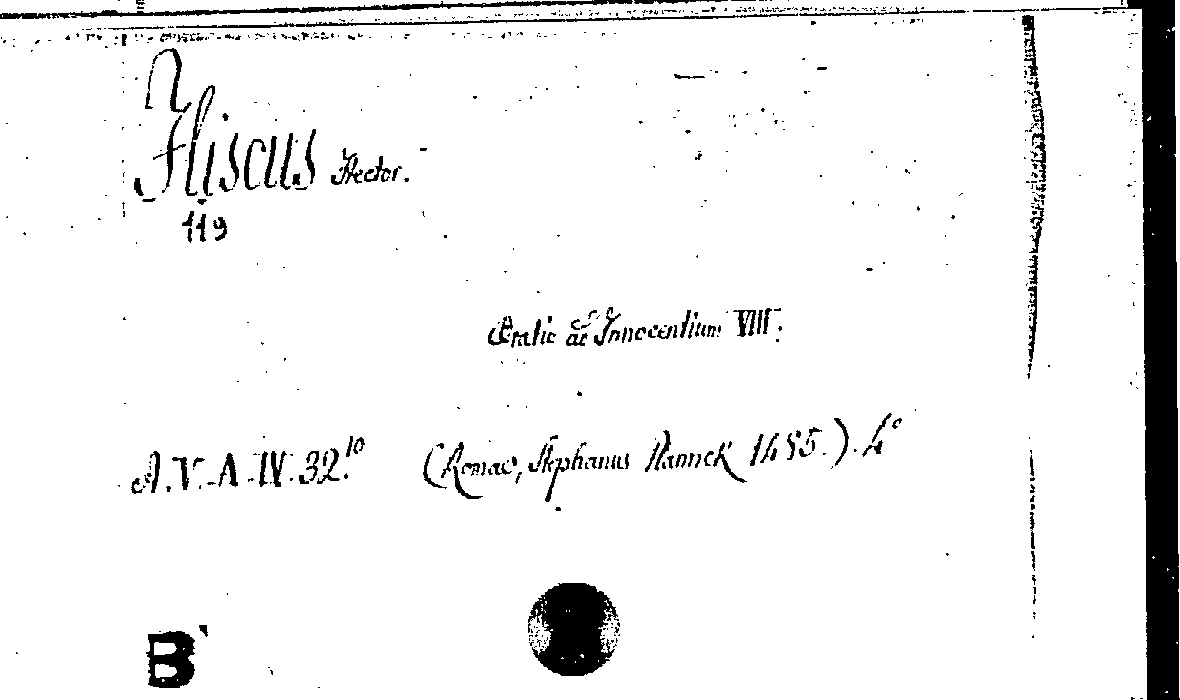 Fliscus Hector.
119
Oratio ad Innocentium VIII.
A.V.-A-IV.32.10
(Romae, Stephanus Plannck 1485.). 4°
B